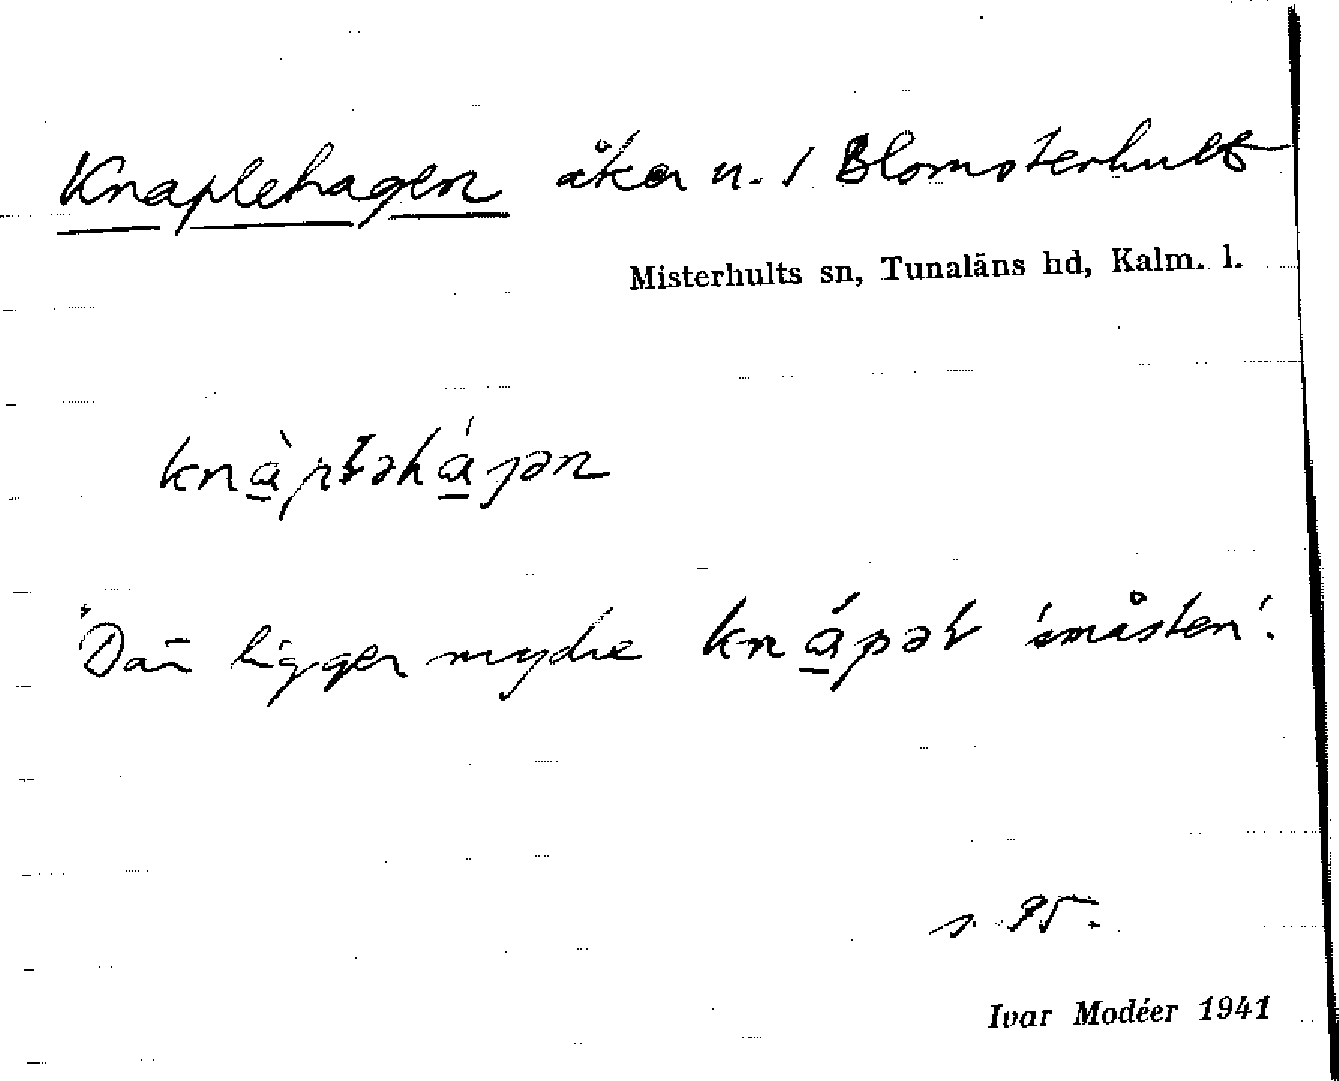 Knaplehagen åker u. / Blomsterhult
Misterhults sn, Tunaläns hd, Kalm. l.
knàpləhágən
"Där ligger mycke knápəl 'småsten'.
s. 95.
Ivar Modéer 1941